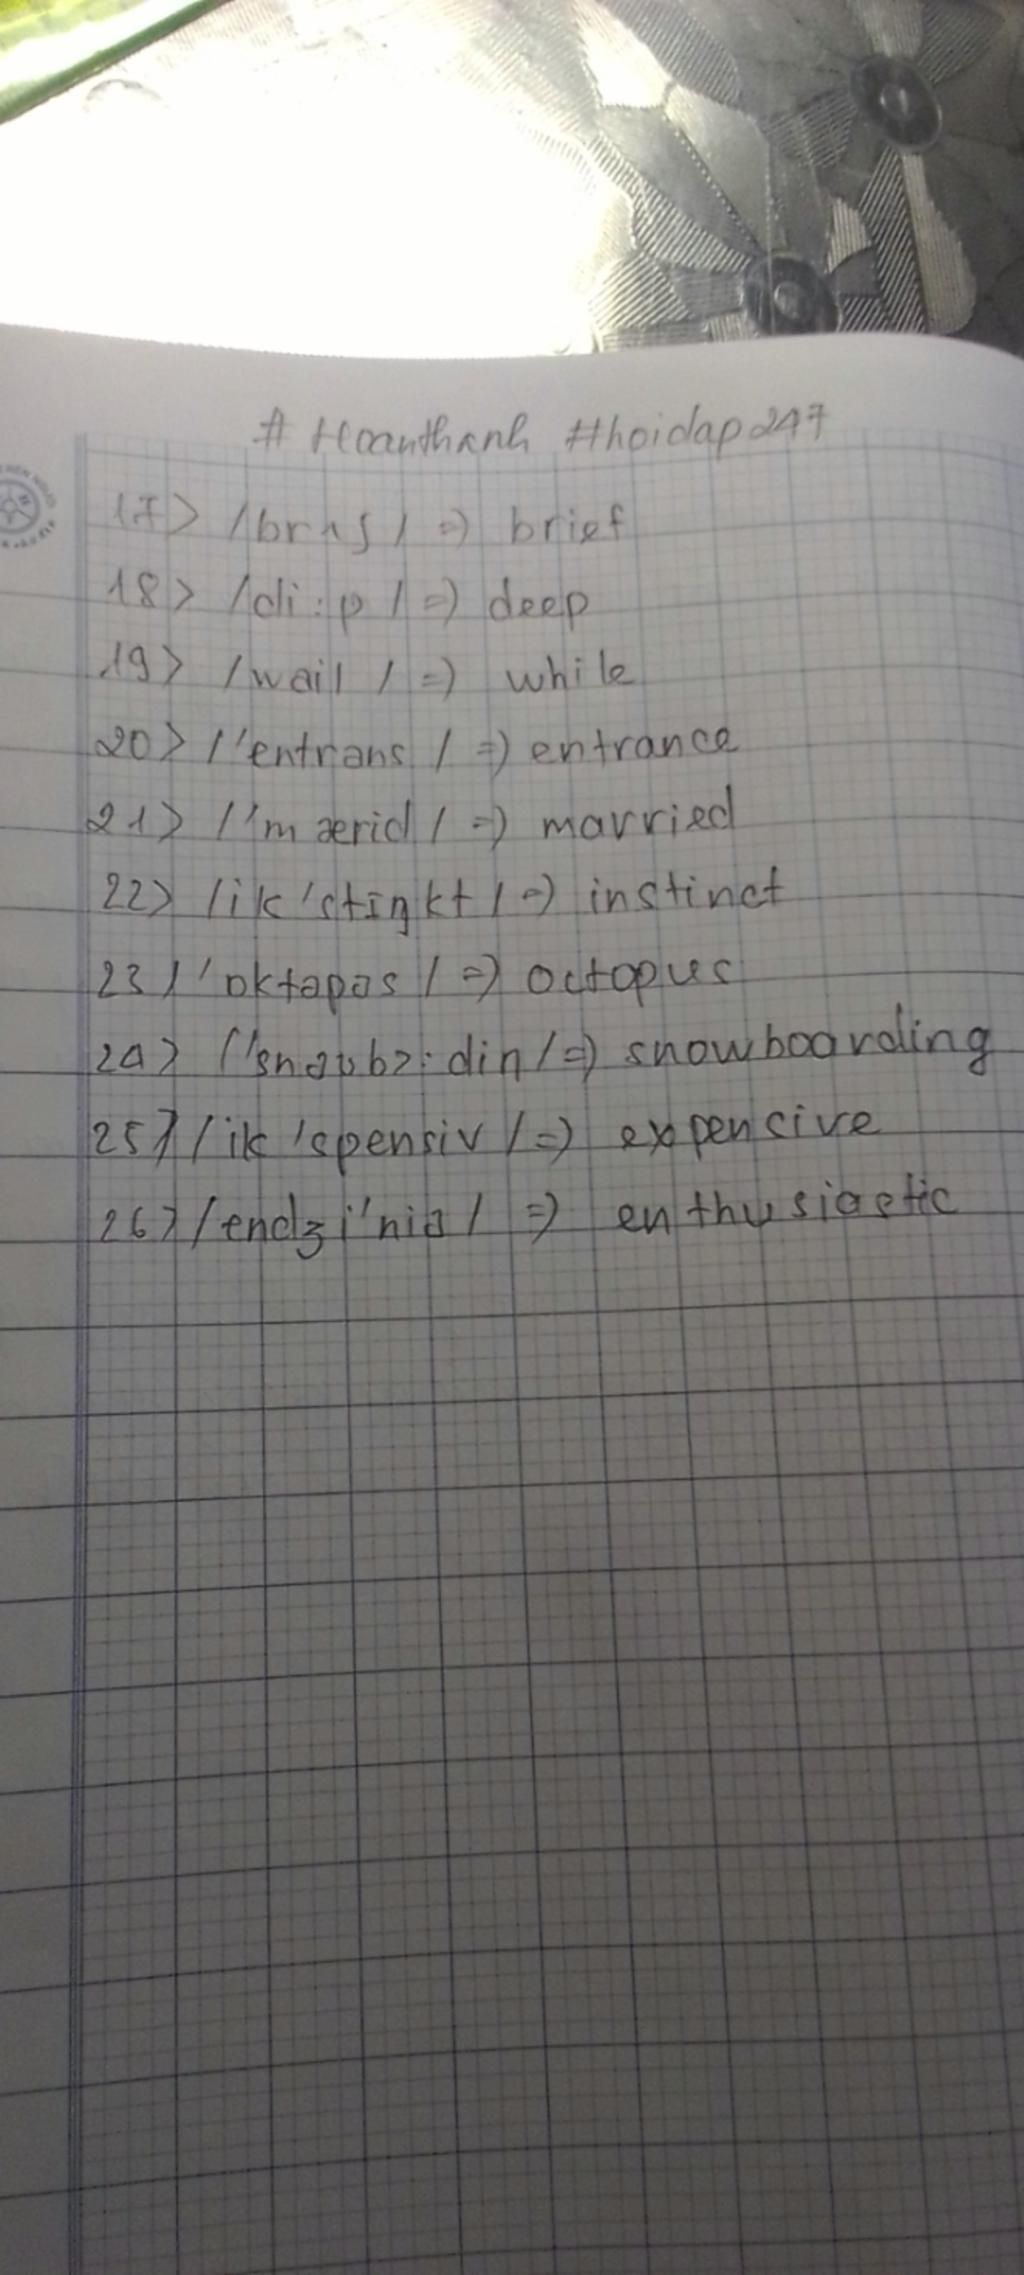 # Hoanthanh #hoidap247
17> /brʌʃ/ => brief
18> /di:p/ => deep
19> /wail/ => while
20> /'entrəns/ => entrance
21> /'mærid/ => married
22> /ik'stiŋkt/ => instinct
23> /'oktəpəs/ => octopus
24> /'snəʊbɔ:diŋ/ => snowboarding
25> /ik'spensiv/ => expensive
26> /endʒi'niə/ => enthusiastic